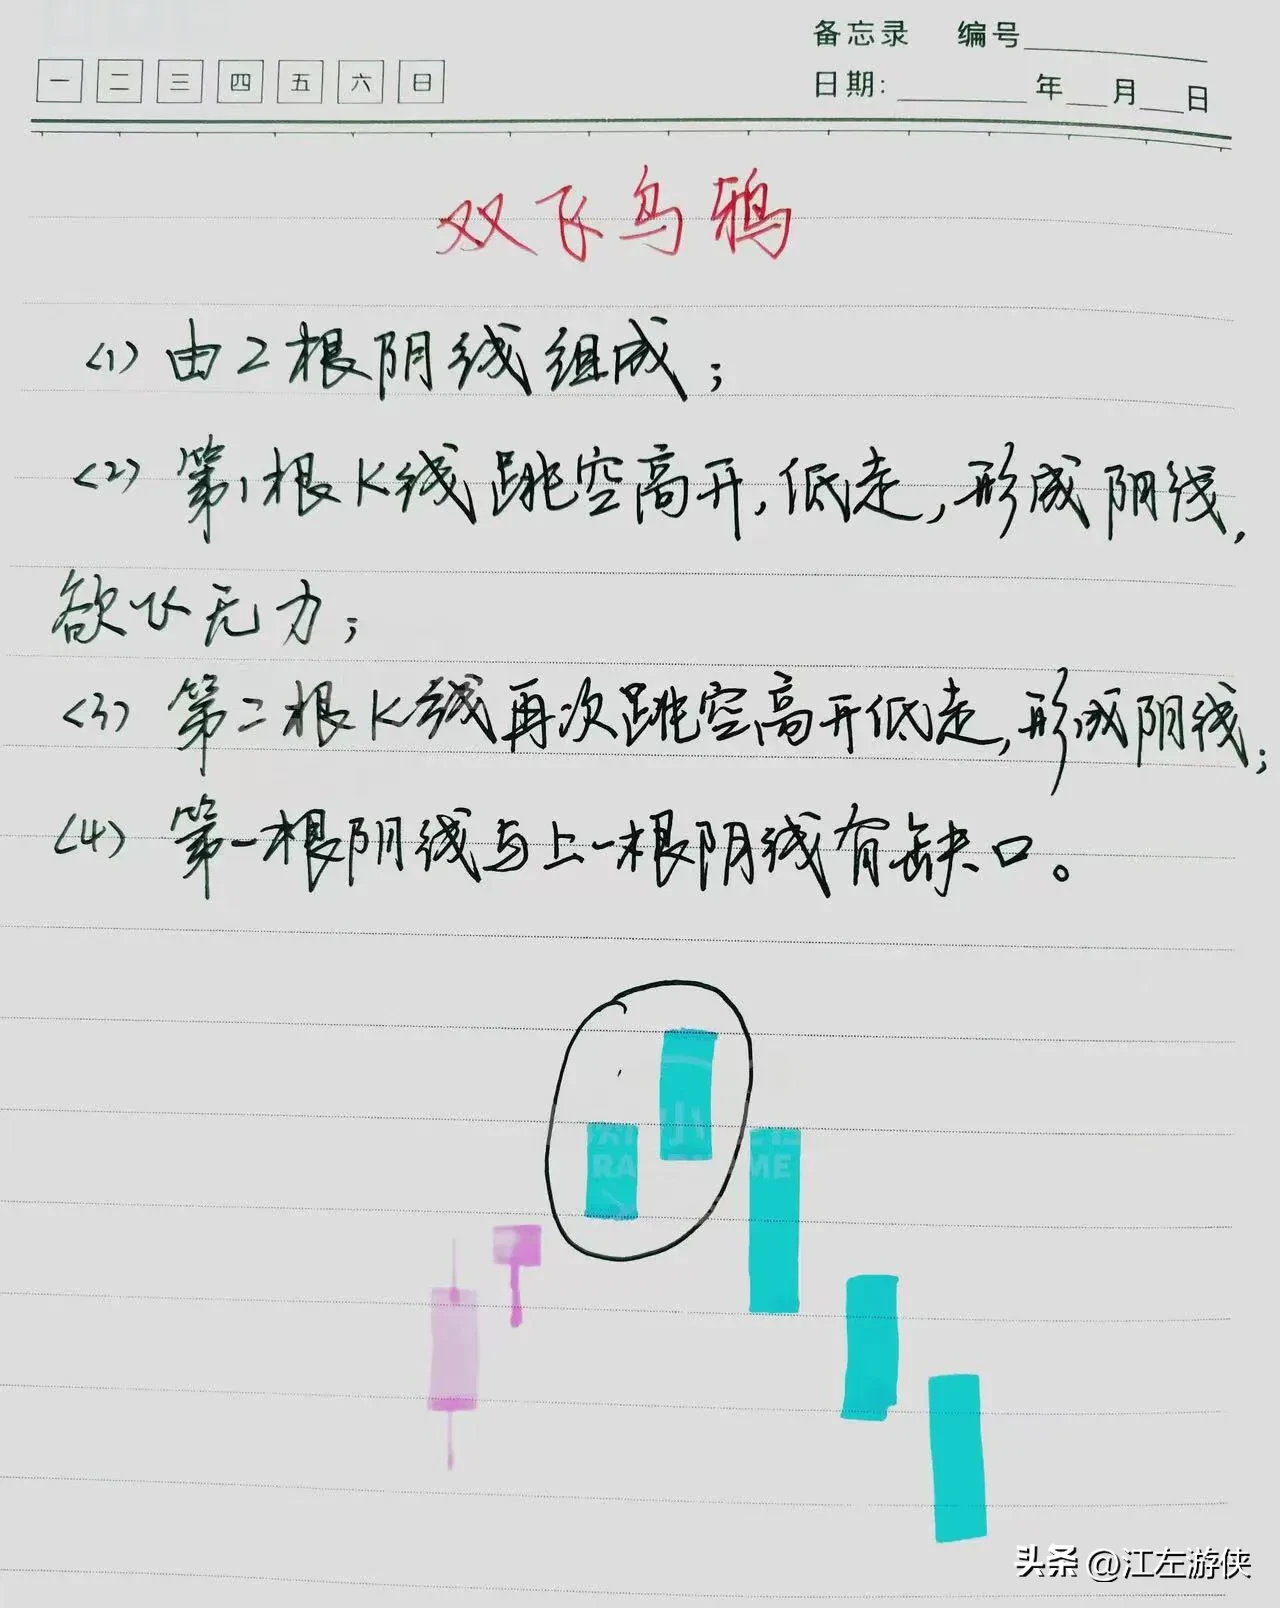 备忘录 编号
一 二 三 四 五 六 日
日期: 年 月 日
双飞乌鸦
(1) 由2根阴线组成;
(2) 第1根K线跳空高开,低走,形成阴线,
欲飞无力;
(3) 第二根K线再次跳空高开低走,形成阴线;
(4) 第一根阴线与上一根阴线有缺口。
头条 @江左游侠